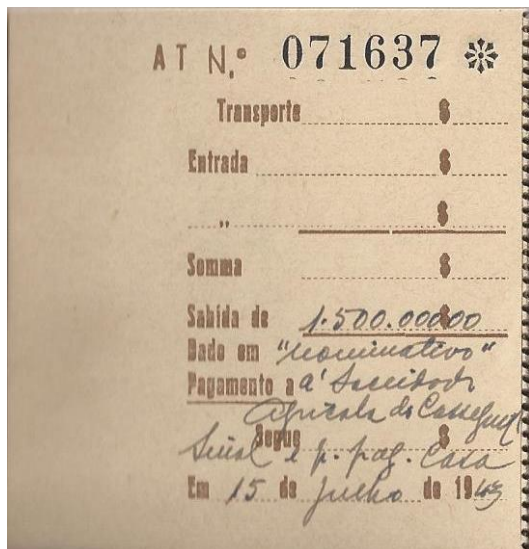 AT N.º 071637
Transporte $
Entrada $
" $
Somma $
Sahida de 1.500.00000
Dado em "nominativo"
Pagamento a a'
Agricola do
Segue $
Sinal e p. pag. Casa
Em 15 de Julho de 1943